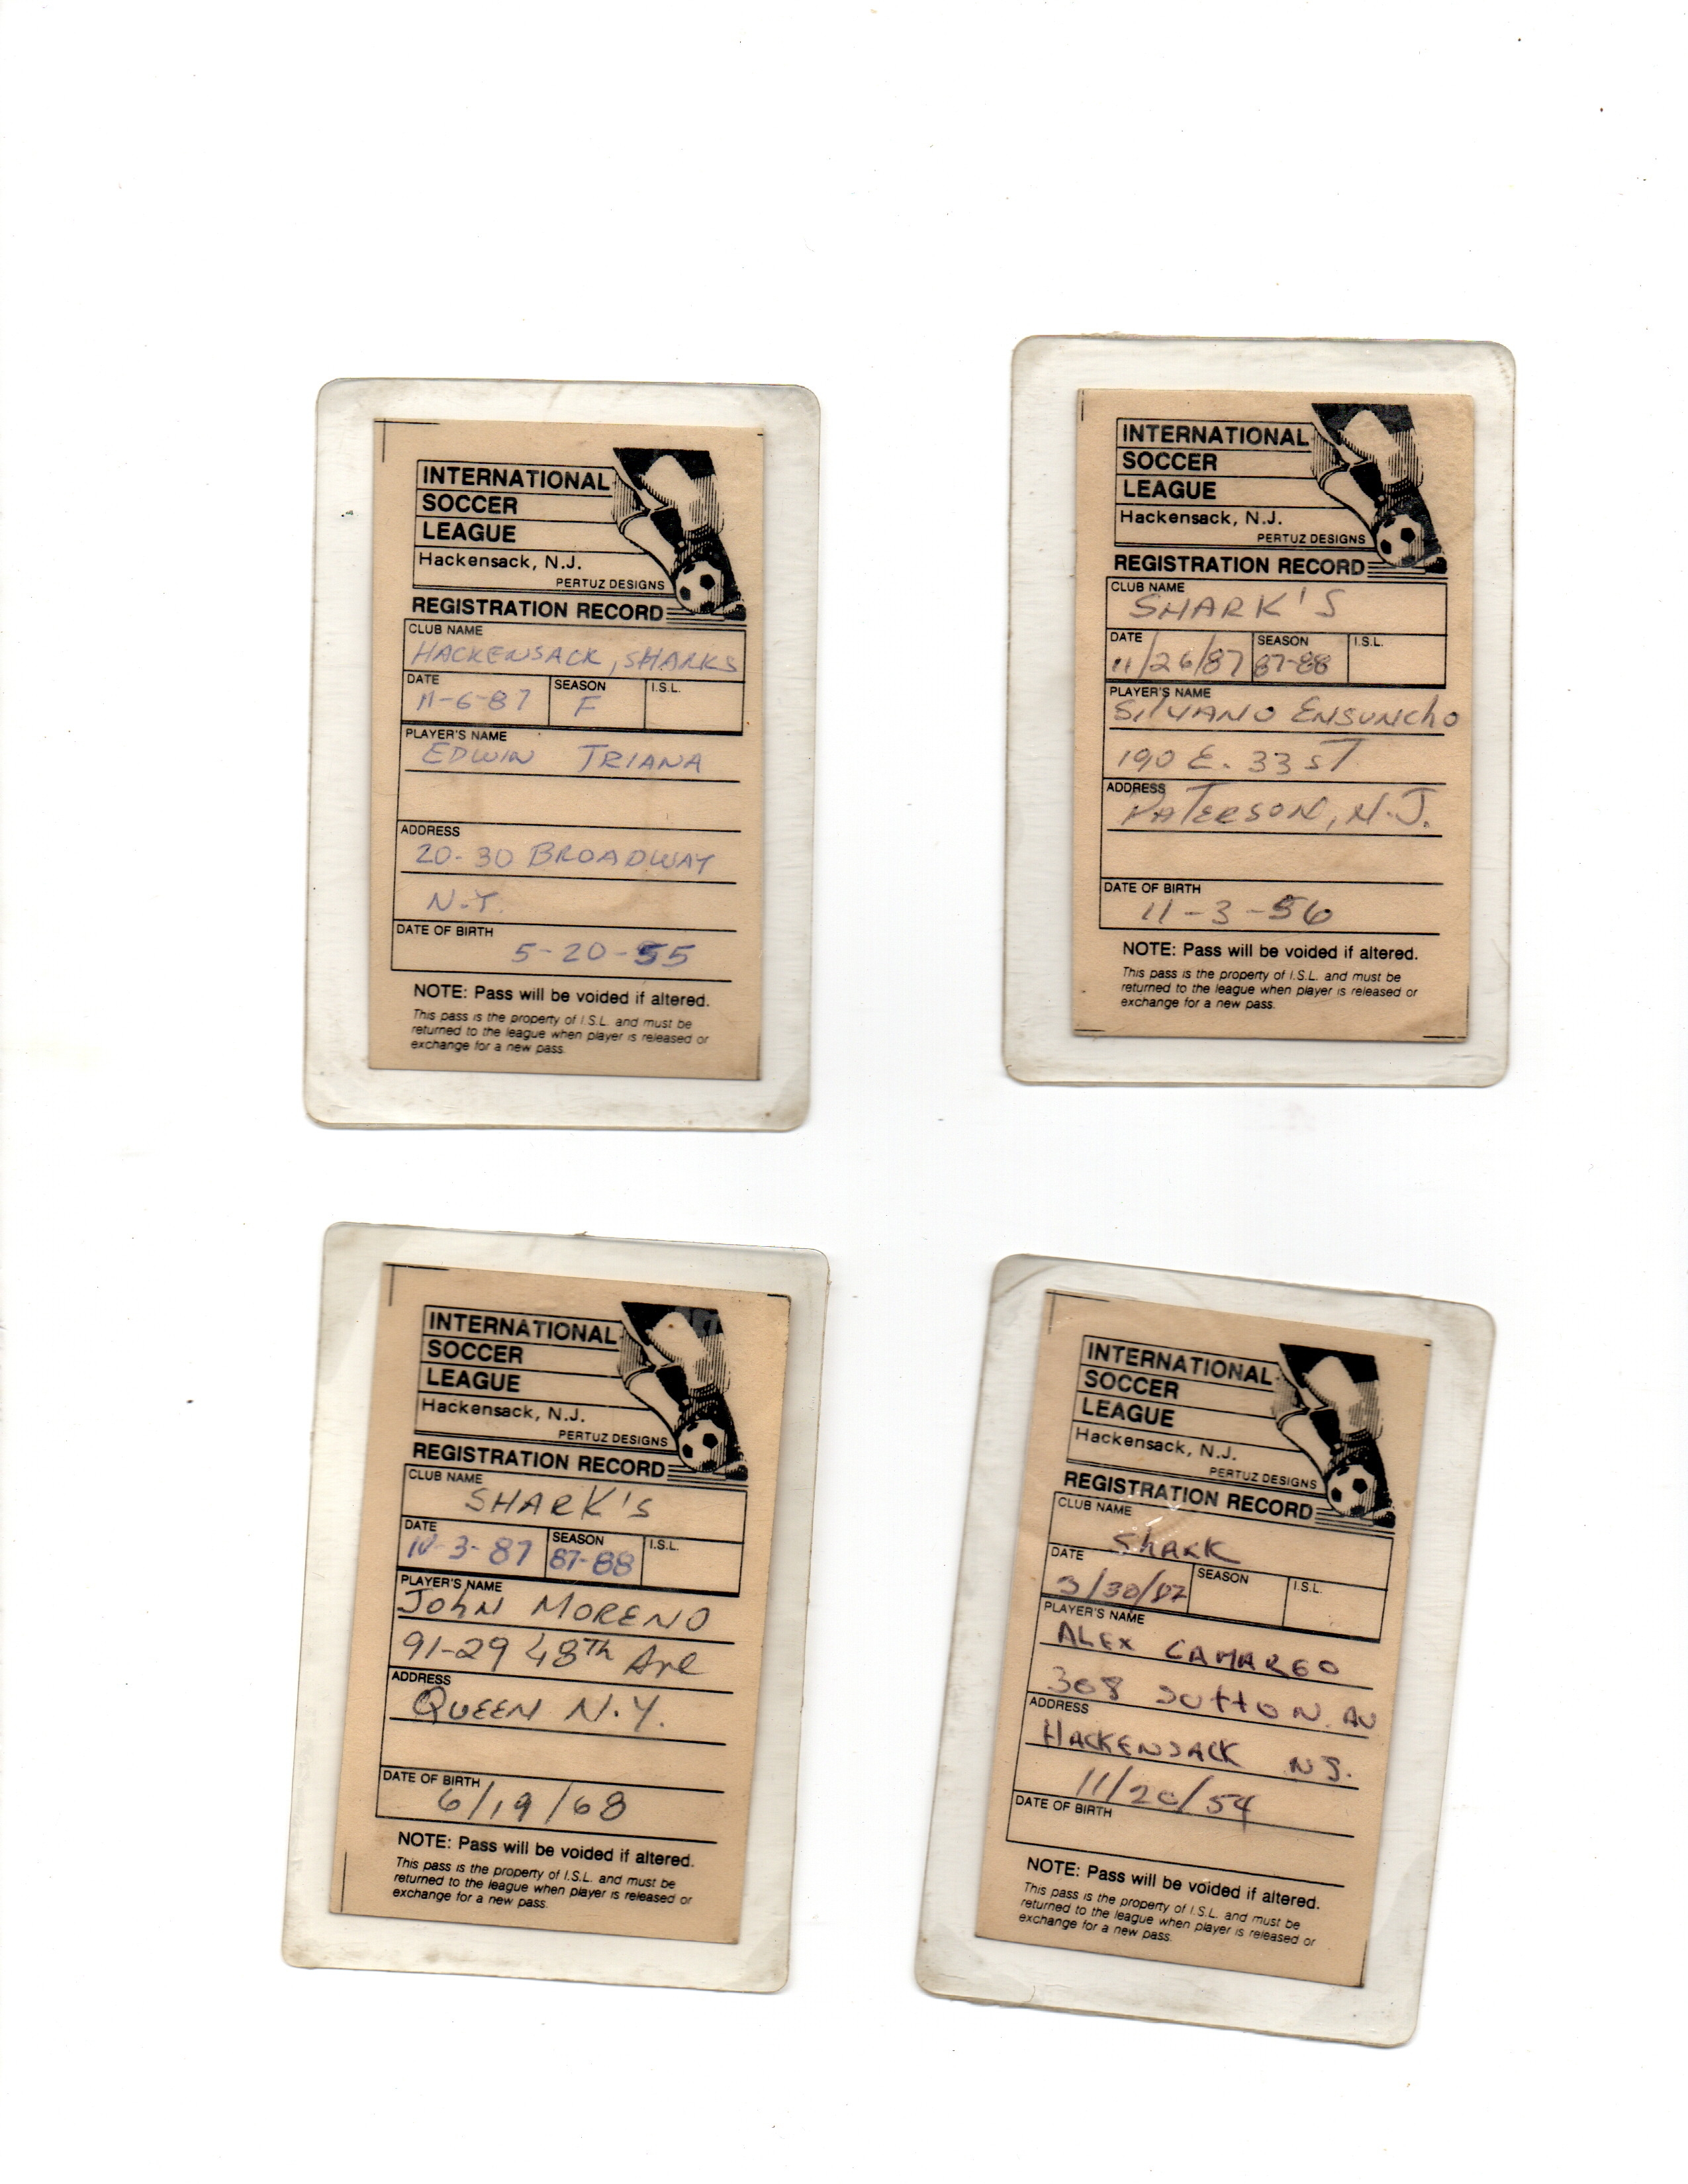 INTERNATIONAL
SOCCER
LEAGUE
Hackensack, N.J.
PERTUZ DESIGNS
REGISTRATION RECORD
CLUB NAME
HACKENSACK, SHARKS
DATE SEASON I.S.L.
11-6-87 F
PLAYER'S NAME
EDWIN TRIANA
ADDRESS
20-30 BROADWAY
N.Y.
DATE OF BIRTH
5-20-55
NOTE: Pass will be voided if altered.
This pass is the property of I.S.L. and must be
returned to the league when player is released or
exchange for a new pass.
INTERNATIONAL
SOCCER
LEAGUE
Hackensack, N.J.
PERTUZ DESIGNS
REGISTRATION RECORD
CLUB NAME
SHARK'S
DATE SEASON I.S.L.
11/26/87 87-88
PLAYER'S NAME
SilVANO ENSUNCHO
190 E. 33 ST
ADDRESS
PATERSON, N.J.
DATE OF BIRTH
11-3-56
NOTE: Pass will be voided if altered.
This pass is the property of I.S.L. and must be
returned to the league when player is released or
exchange for a new pass.
INTERNATIONAL
SOCCER
LEAGUE
Hackensack, N.J.
PERTUZ DESIGNS
REGISTRATION RECORD
CLUB NAME
SHARK'S
DATE SEASON I.S.L.
10-3-87 87-88
PLAYER'S NAME
JOHN MORENO
91-29 48Th Ave
ADDRESS
QUEEN N.Y.
DATE OF BIRTH
6/19/68
NOTE: Pass will be voided if altered.
This pass is the property of I.S.L. and must be
returned to the league when player is released or
exchange for a new pass.
INTERNATIONAL
SOCCER
LEAGUE
Hackensack, N.J.
PERTUZ DESIGNS
REGISTRATION RECORD
CLUB NAME
ShARK
DATE SEASON I.S.L.
3/30/87
PLAYER'S NAME
ALEX CAMARGO
308 SUttON. AV
ADDRESS
HACKENSACK NJ.
11/20/54
DATE OF BIRTH
NOTE: Pass will be voided if altered.
This pass is the property of I.S.L. and must be
returned to the league when player is released or
exchange for a new pass.